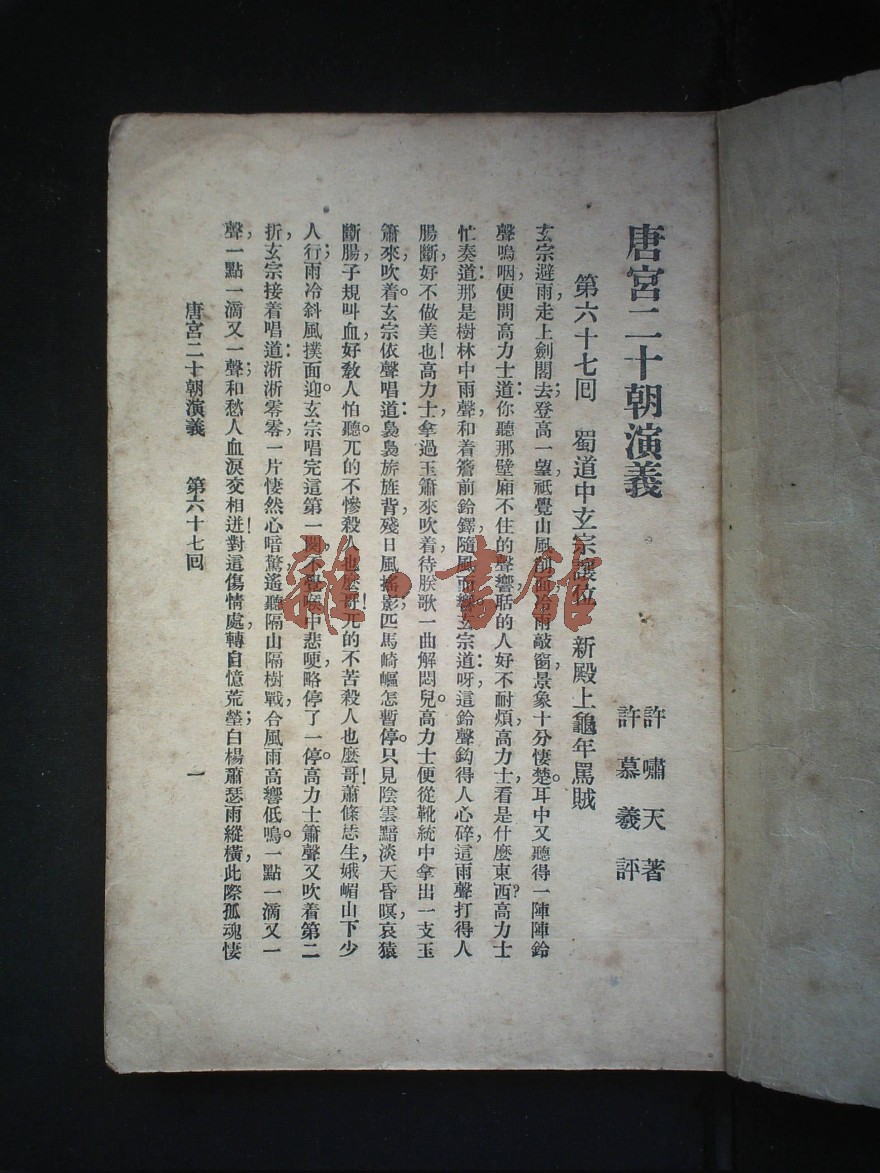 唐宮二十朝演義
許嘯天著
許慕羲評
第六十七回　蜀道中玄宗讓位　新殿上龜年罵賊
玄宗避雨，走上劍閣去；登高一望，祇覺山風削面，冷雨敲窗，景象十分悽楚。耳中又聽得一陣陣鈴
聲嗚咽，便問高力士道：你聽那壁廂不住的聲響，聒的人好不耐煩，高力士，看是什麼東西？高力士
忙奏道：那是樹林中雨聲，和着簷前鈴鐸，隨風而響。玄宗道：呀，這鈴聲鈎得人心碎，這雨聲打得人
腸斷，好不做美也！高力士，拿過玉簫來吹着，待朕歌一曲解悶兒。高力士便從靴統中拿出一支玉
簫來，吹着。玄宗依聲唱道：裊裊旂旌，背殘日，風搖影；匹馬崎嶇怎暫停。只見陰雲黯淡天昏暝，哀猿
斷腸，子規叫血，好敎人怕聽。兀的不慘殺人也麼哥！兀的不苦殺人也麼哥！蕭條恁生，娥嵋山下少
人行；雨冷斜風撲面迎。玄宗唱完這第一闋，不覺喉中悲哽，略停了一停。高力士簫聲又吹着第二
折，玄宗接着唱道：淅淅零零，一片悽然心暗驚，遙聽隔山隔樹，戰合風雨，高響低鳴。一點一滴又一
聲，一點一滴又一聲；和愁人血淚交相迸！對這傷情處，轉自憶荒塋；白楊蕭瑟雨縱橫，此際孤魂悽
唐宮二十朝演義　第六十七回　一
雜·書館